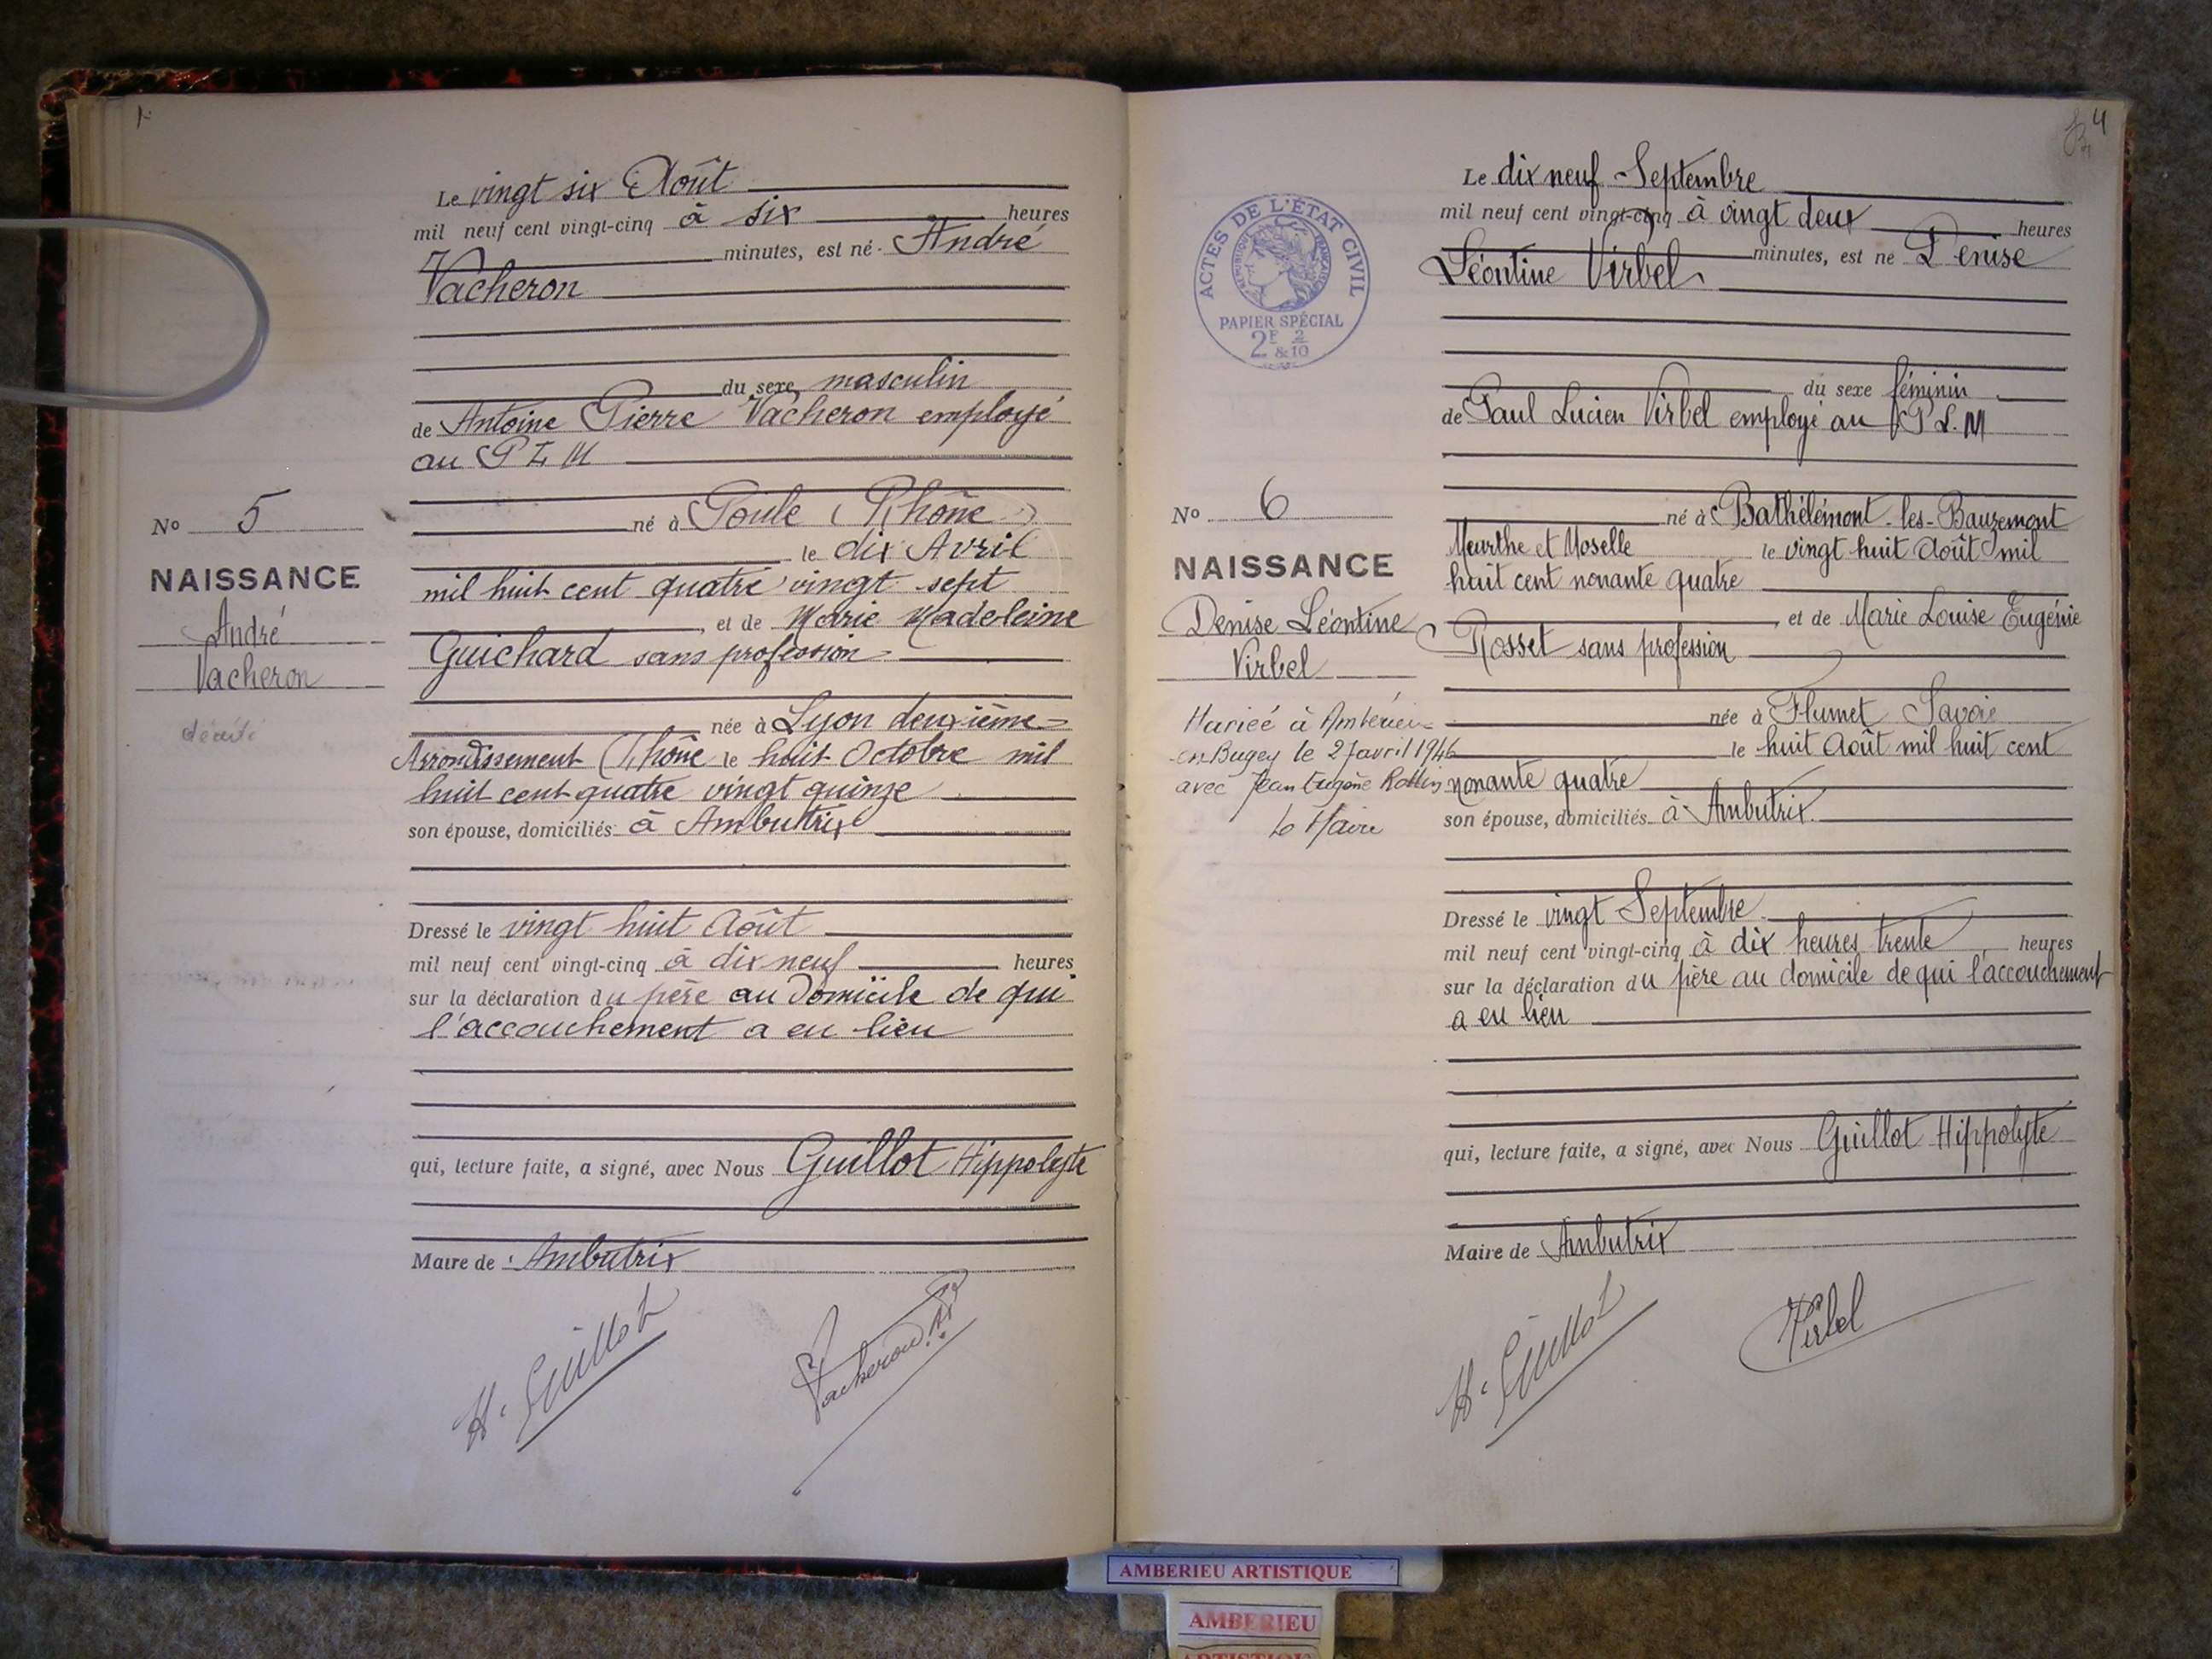 Le vingt six Août
mil neuf cent vingt-cinq à six heures
minutes, est né André
Vacheron
du sexe masculin
de Antoine Pierre Vacheron employé
au P L M
né à Poule (Rhône)
le dix Avril
mil huit cent quatre vingt sept
, et de Marie Madeleine
Guichard sans profession
née à Lyon deuxième
Arrondissement Rhône le huit Octobre mil
huit cent quatre vingt quinze
son épouse, domiciliés à Ambutrix
Dressé le vingt huit Août
mil neuf cent vingt-cinq à dix neuf heures
sur la déclaration du père au domicile de qui
l'accouchement a eu lieu
qui, lecture faite, a signé, avec Nous Guillot Hippolyte
Maire de Ambutrix
H. Guillot
Vacheron
No 5
NAISSANCE
André
Vacheron
4
Le dix neuf Septembre
mil neuf cent vingt-cinq à vingt deux heures
minutes, est né Denise
Léontine Virbel
du sexe féminin
de Paul Lucien Virbel employé au P.L.M
né à Bathélémont-les-Bauzemont
Meurthe et Moselle le vingt huit Août mil
huit cent nonante quatre
, et de Marie Louise Eugénie
Rosset sans profession
née à Flumet Savoie
le huit Août mil huit cent
nonante quatre
son épouse, domiciliés à Ambutrix.
Dressé le vingt Septembre
mil neuf cent vingt-cinq à dix heures trente heures
sur la déclaration du père au domicile de qui l'accouchement
a eu lieu
qui, lecture faite, a signé, avec Nous Guillot Hippolyte
Maire de Ambutrix
H. Guillot
Virbel
ACTES DE L'ÉTAT CIVIL
PAPIER SPÉCIAL
2F 2
& 10
No 6
NAISSANCE
Denise Léontine
Virbel
Mariée à Ambérieu
en Bugey le 27 avril 1946
avec Jean Eugène
Le Maire
AMBERIEU ARTISTIQUE
AMBERIEU
ARTISTIQUE